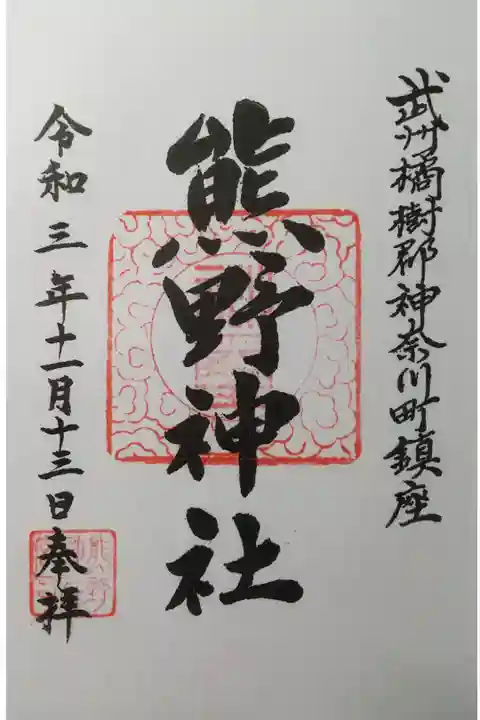 武州橘樹郡神奈川町鎮座
熊野神社
令和三年十一月十三日奉拝